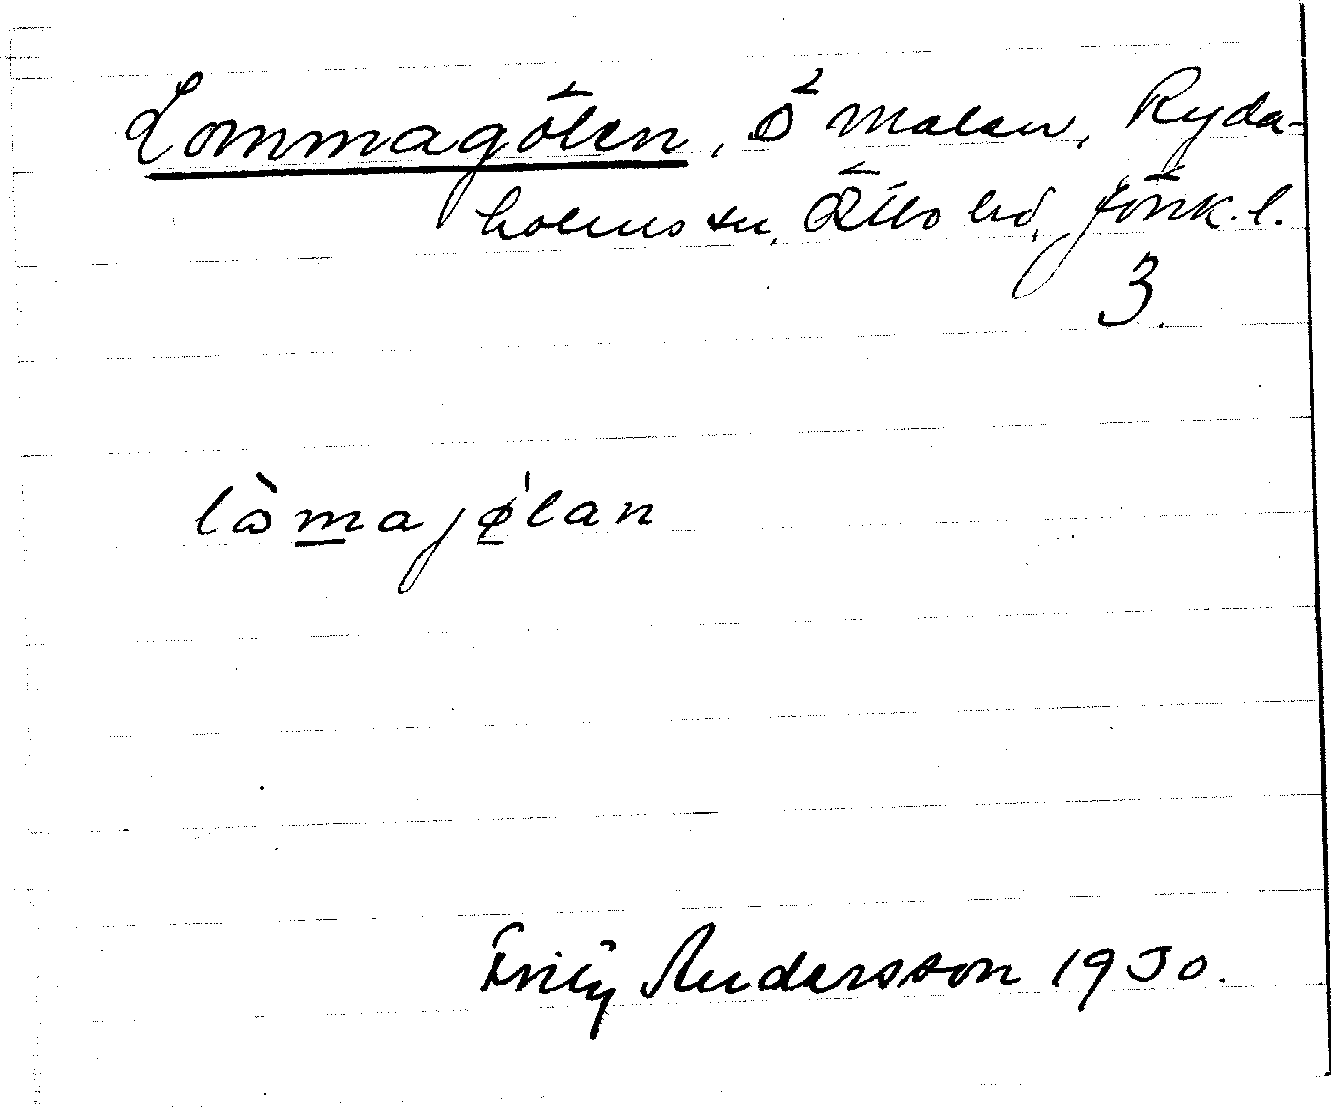 Lommagölen, Ö malen, Ryda-
holms sn, Östbo hd, Jönk. l.
3.
lòmajölan
Andersson 1930.